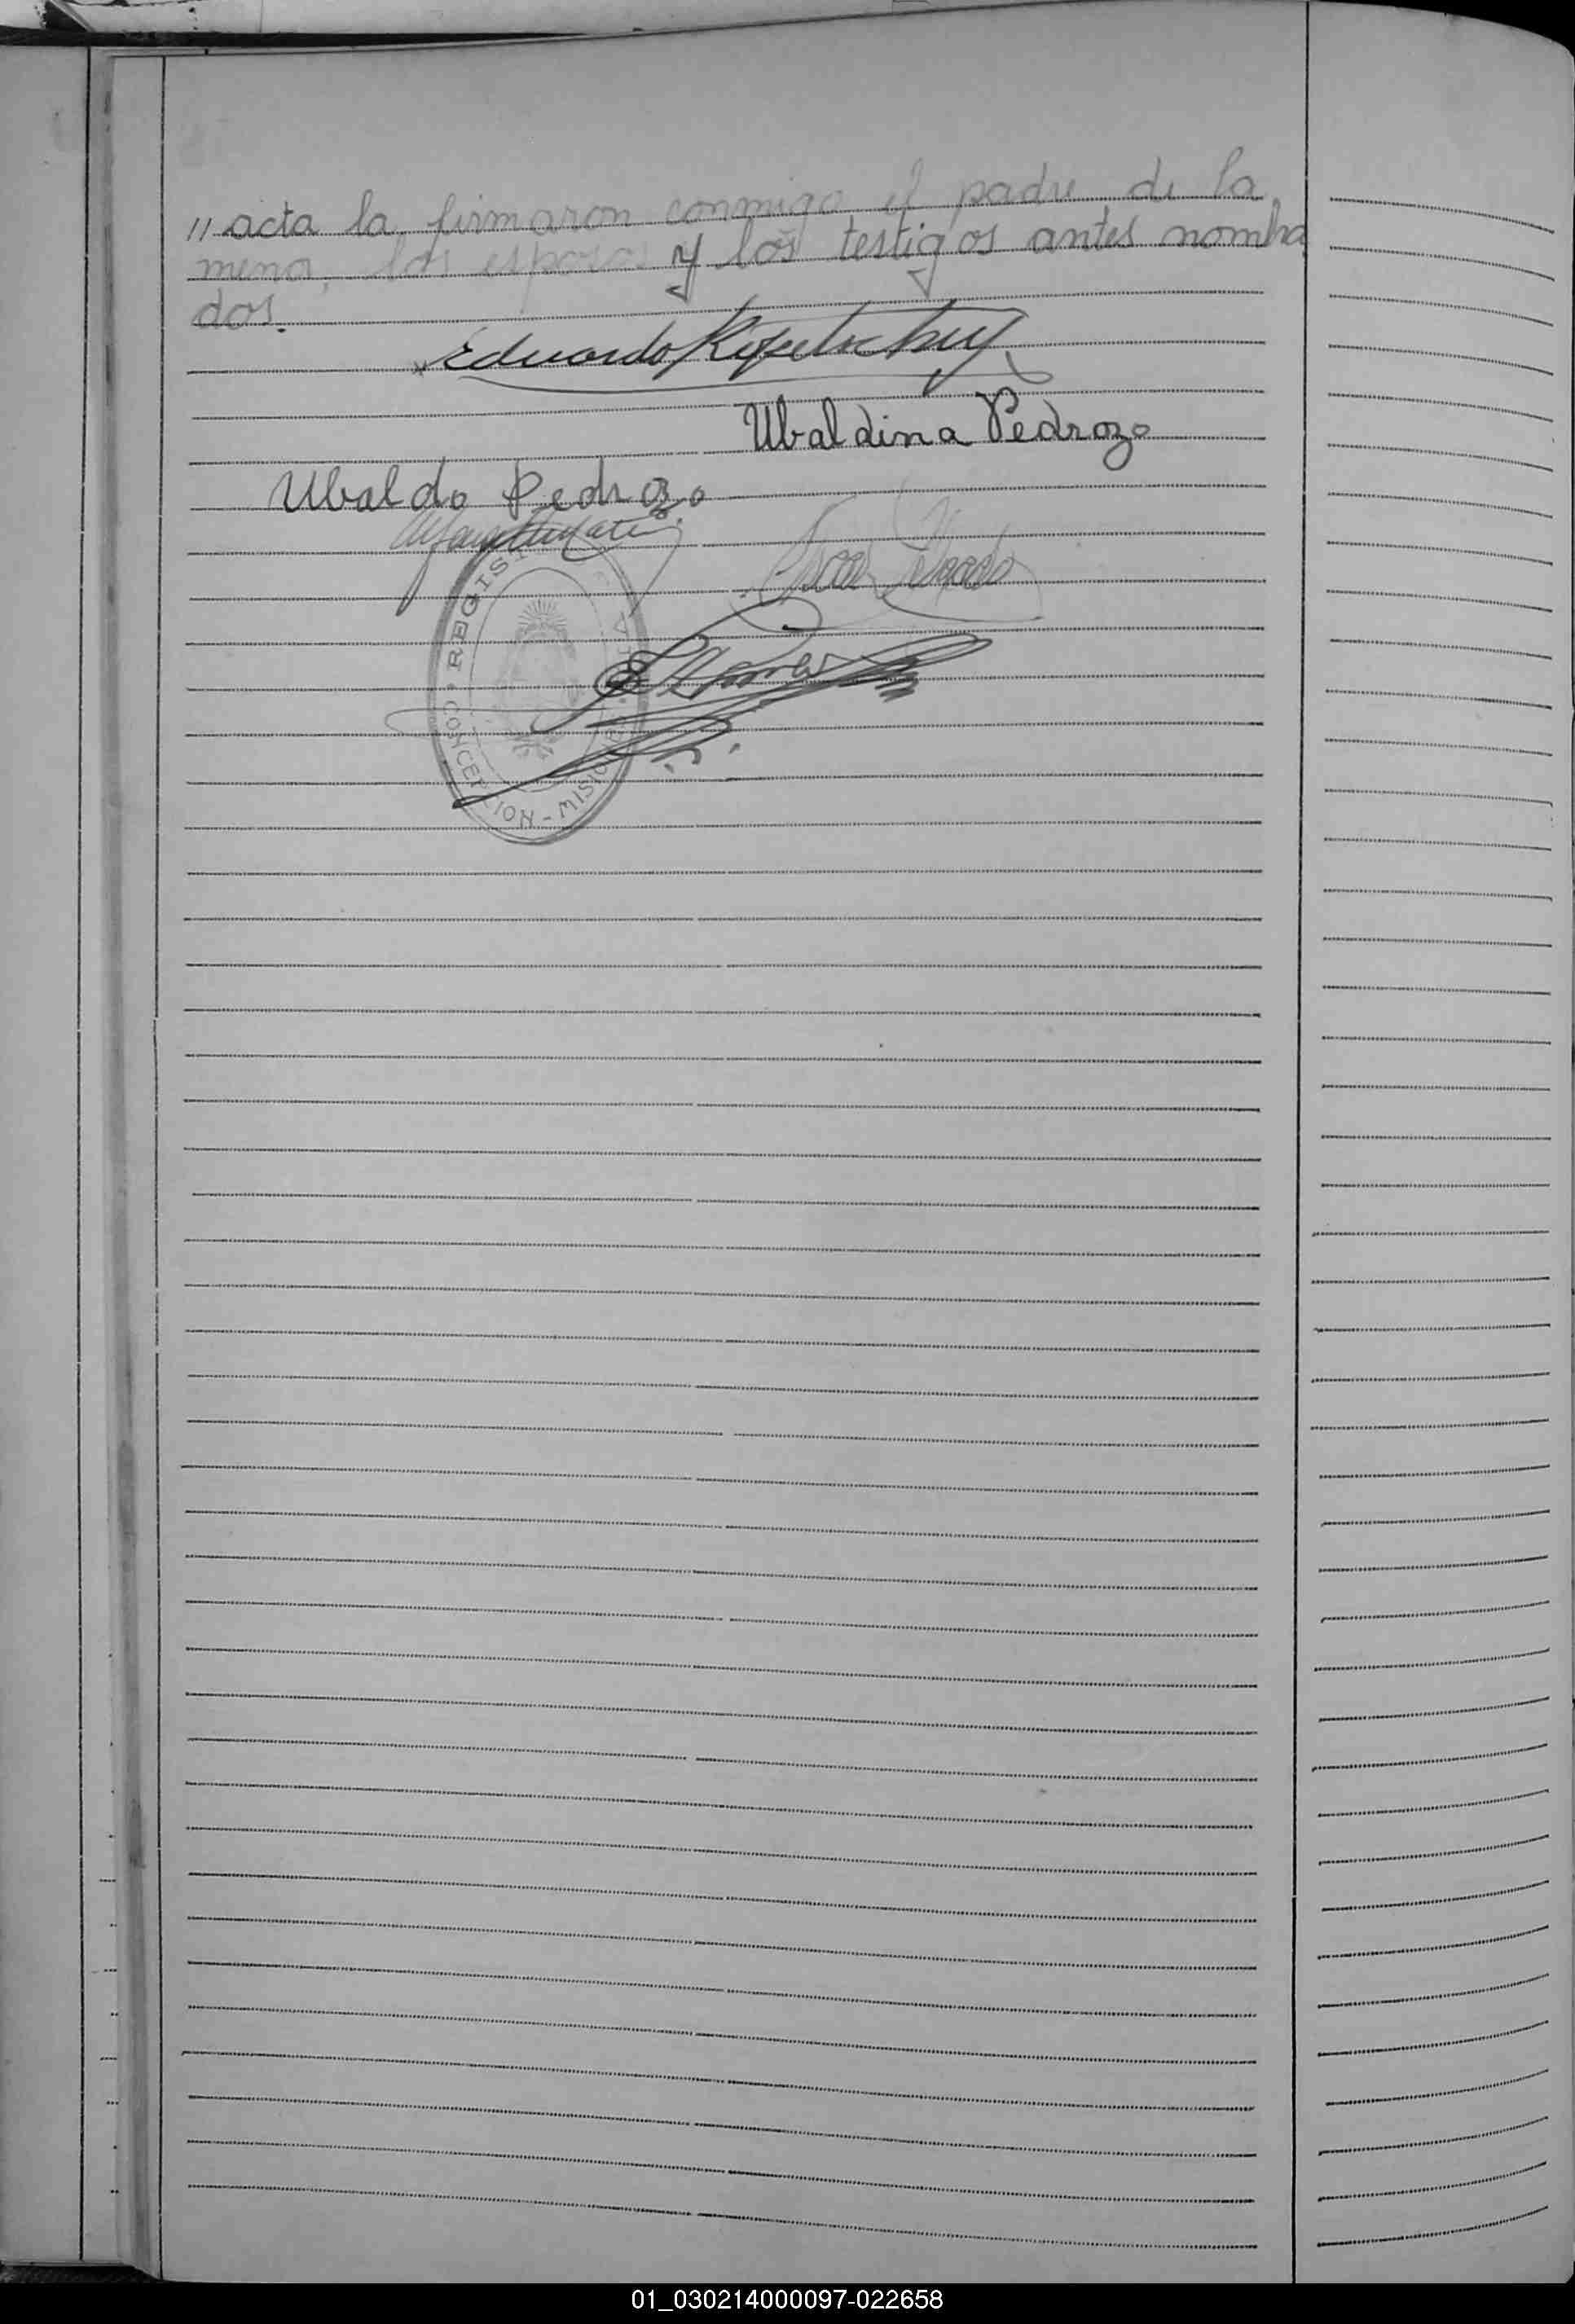 // acta la firmaron conmigo el padre de la
menor, los esposos y los testigos antes nombra
dos.
Eduardo
Ubaldina Pedrozo
Ubaldo Pedrozo
REGIS
CONCEPCION - MISIONES
01_030214000097-022658